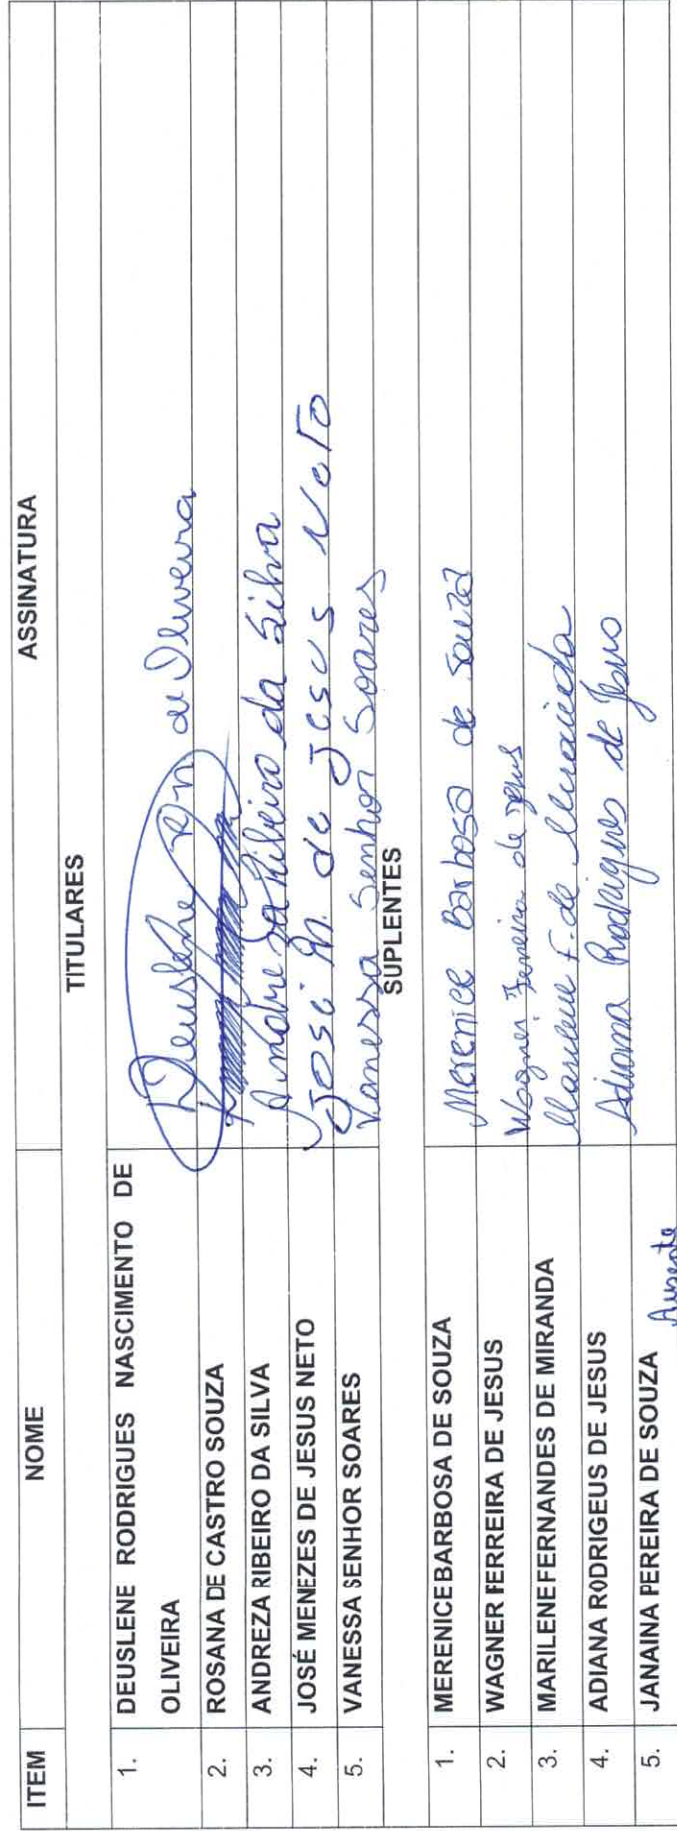 ITEM NOME ASSINATURA
TITULARES
1. DEUSLENE RODRIGUES NASCIMENTO DE
OLIVEIRA Deuslene de Oliveira
2. ROSANA DE CASTRO SOUZA
3. ANDREZA RIBEIRO DA SILVA Andreza Ribeiro da Silva
4. JOSÉ MENEZES DE JESUS NETO José M. de Jesus Neto
5. VANESSA SENHOR SOARES Vanessa Senhor Soares
SUPLENTES
1. MERENICEBARBOSA DE SOUZA Merenice Barbosa de Souza
2. WAGNER FERREIRA DE JESUS Wagner Ferreira de Jesus
3. MARILENEFERNANDES DE MIRANDA Marilene F. de Miranda
4. ADIANA RODRIGEUS DE JESUS Adiana Rodrigues de Jesus
5. JANAINA PEREIRA DE SOUZA Ausente